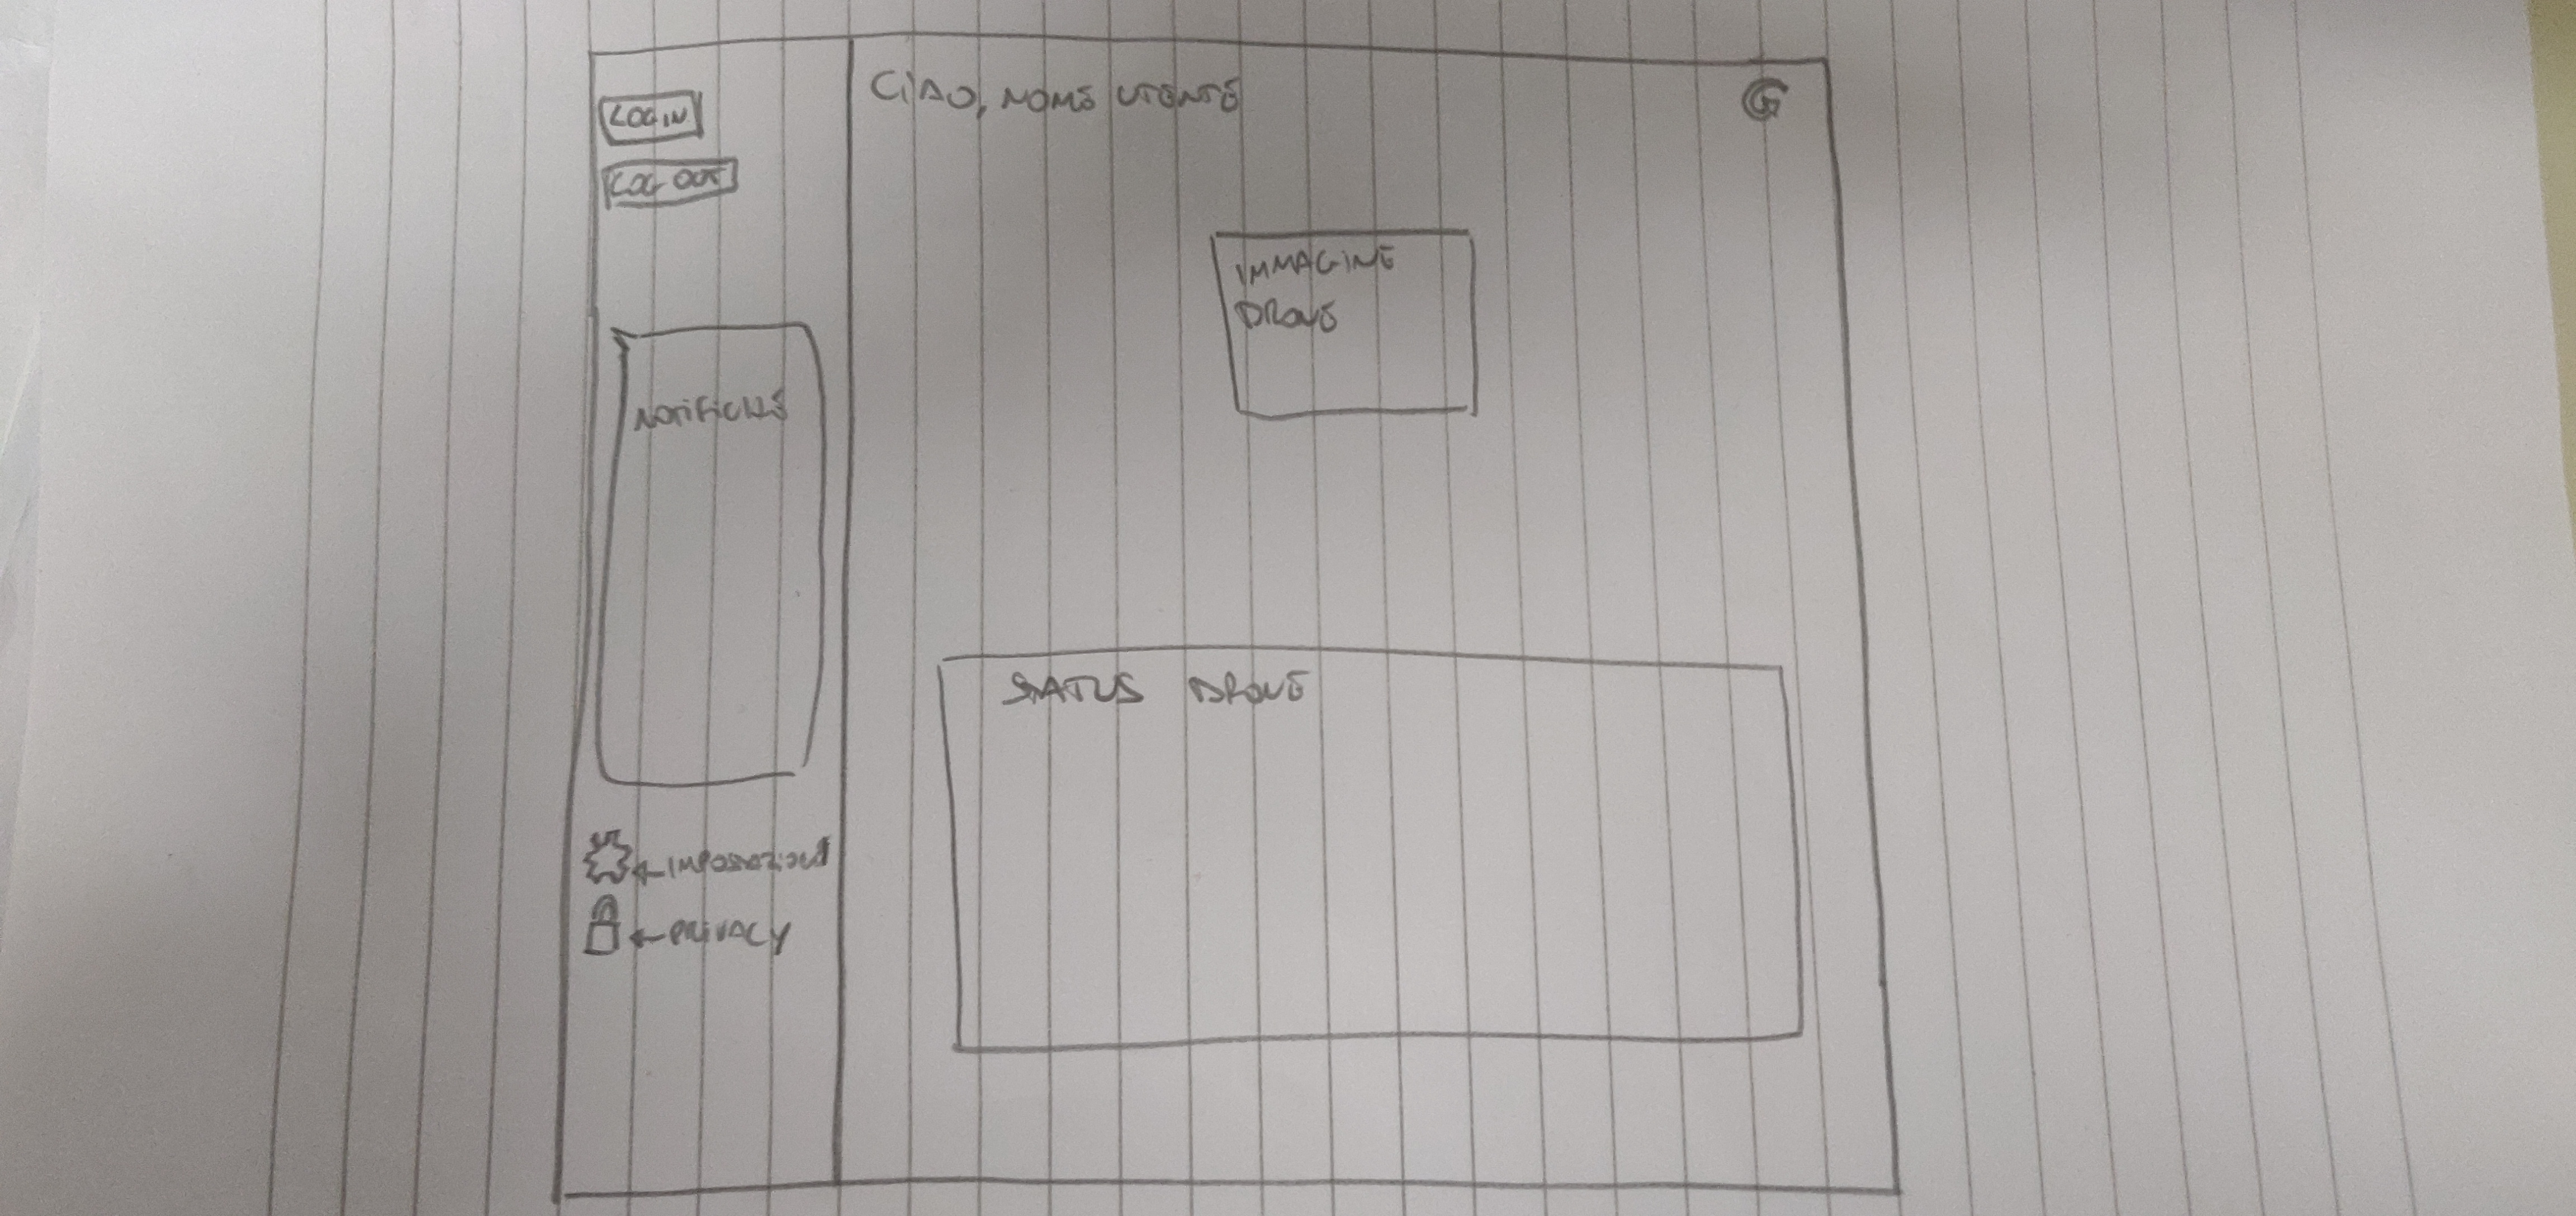 LOGIN
LOG OUT
NOTIFICHE
IMPOSTAZIONI
PRIVACY
CIAO, NOME UTENTE
IMMAGINE
DRONE
STATUS DRONE